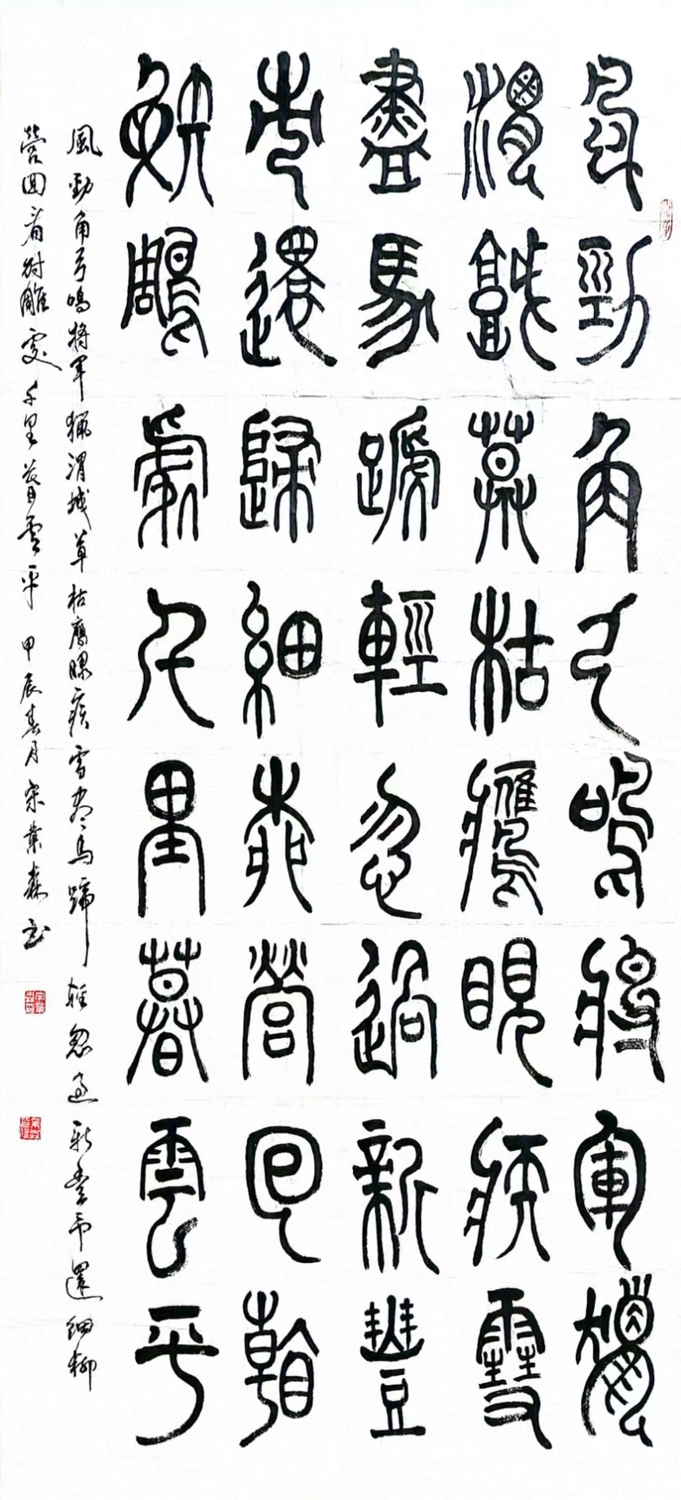 風勁角弓鳴將軍獵
渭城草枯鷹眼疾雪
盡馬蹄輕忽過新豐
市還歸細柳營回看
射鵰處千里暮雲平
風勁角弓鳴將軍獵渭城草枯鷹眼疾雪盡馬蹄輕忽過新豐市還細柳
營回看射雕處千里暮雲平 甲辰春月宋業森書